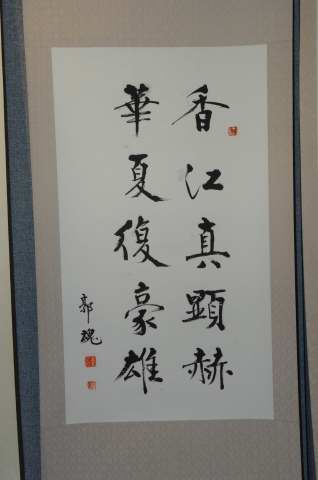 香江真顯赫
華夏復豪雄
郭瑰